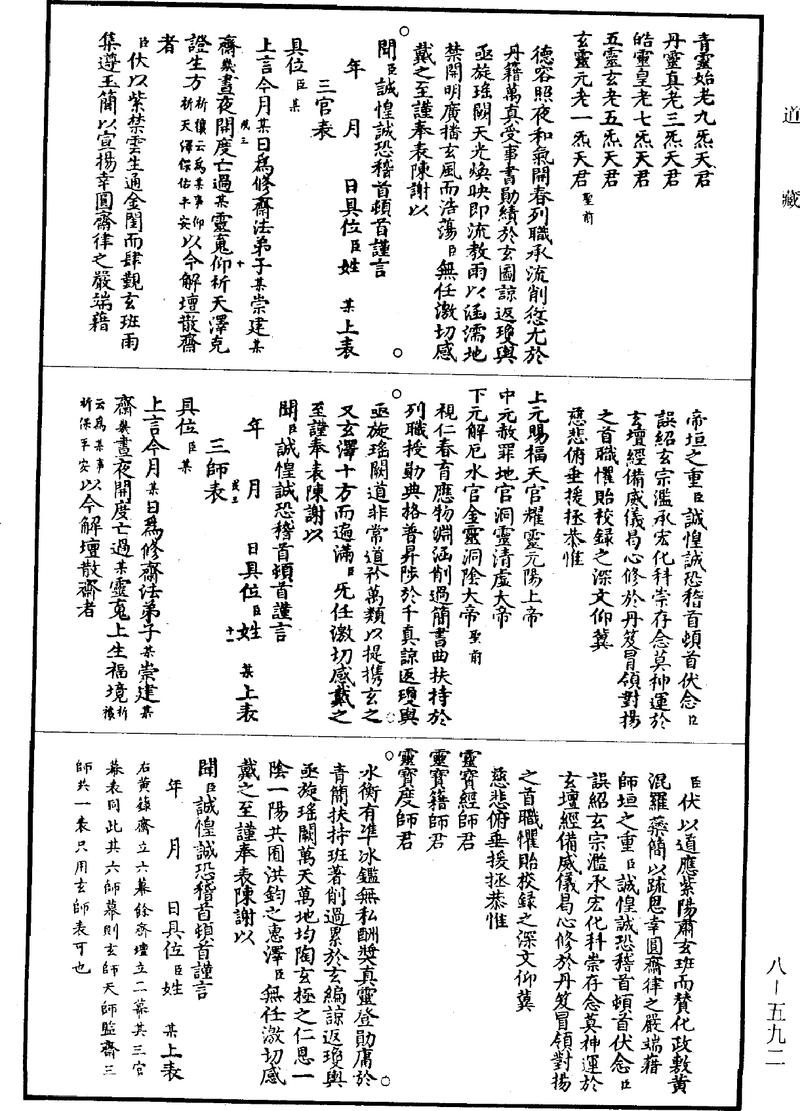 道藏
青靈始老九炁天君
丹靈真老三炁天君
皓靈皇老七炁天君
五靈玄老五炁天君
玄靈元老一炁天君聖前
德容照夜和氣開春列職承流削愆尤於
丹籍萬真受事書勛績於玄圖諒返瓊輿
亟旋瑤闕天光煥映即流教雨以涵濡地
禁開明廣播玄風而浩蕩臣無任激切感
戴之至謹奉表陳謝以
聞臣誠惶誠恐稽首頓首謹言
年月日具位臣姓某上表
三官表
具位臣某
上言今月某日為修齋法弟子某崇建某
齋幾晝夜開度亡過某靈䰟仰祈天澤克
證生方祈禳云為某事仰祈天澤保佑平安以今解壇散齋
者
臣伏以紫禁雲生通金闺而肆覲玄班雨
集遵玉簡以宣揚幸圓齋律之嚴端藉
帝垣之重臣誠惶誠恐稽首頓首伏念臣
誤紹玄宗濫承宏化科崇存念莫神運於
玄壇經備威儀曷心修於丹笈冒領對揚
之首職懼貽校錄之深文仰冀
慈悲俯垂援拯恭惟
上元賜福天官耀靈元陽上帝
中元赦罪地官洞靈清虛大帝
下元解厄水官金靈洞陰大帝聖前
視仁春育應物淵涵削過簡書曲扶持於
列職授勛典格普昇陟於千真諒返瓊輿
亟旋瑤闕道非常道矜萬類以提携玄之
又玄澤十方而遍滿臣旡任激切感戴之
至謹奉表陳謝以
聞臣誠惶誠恐稽首頓首謹言
年月日具位臣姓某上表
三師表
具位臣某
上言今月某日為修齋法弟子某崇建某
齋幾晝夜開度亡過某靈䰟上生福境祈禳
云為某事祈保平安以今解壇散齋者
臣伏以道應紫陽肅玄班而贊化政敷黃
混羅蘂簡以疏恩幸圓齋律之嚴端藉
師垣之重臣誠惶誠恐稽首頓首伏念臣
誤紹玄宗濫承宏化科崇存念莫神運於
玄壇經備威儀曷心修於丹笈冒領對揚
之首職懼貽校錄之深文仰冀
慈悲俯垂援拯恭惟
靈寶經師君
靈寶籍師君
靈寶度師君
水衡有準冰鑑無私酬獎真靈登勛庸於
青簡扶持班著削過累於玄編諒返瓊輿
亟旋瑤闕萬天萬地均陶玄極之仁恩一
陰一陽共囿洪鈞之惠澤臣無任激切感
戴之至謹奉表陳謝以
聞臣誠惶誠恐稽首頓首謹言
年月日具位臣姓某上表
右黃籙齋立六幕餘齋壇立二幕其三官
幕表同此其六師幕則玄師天師監齋三
師共一表只用玄師表可也
八－五九二